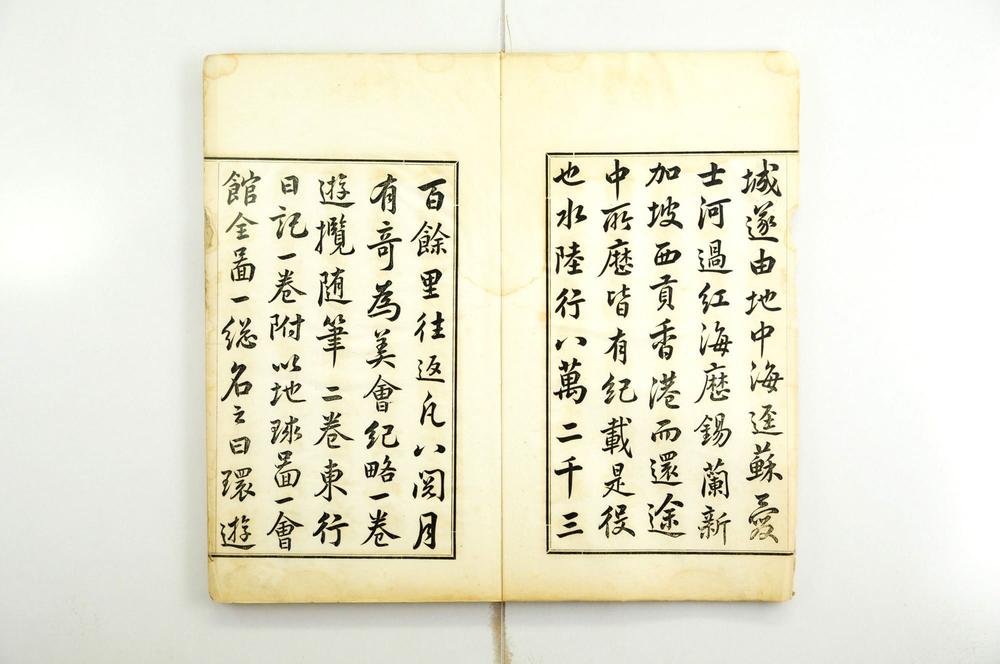 城遂由地中海逕蘇爱
士河過紅海歷錫蘭新
加坡西貢香港而還途
中所歷皆有紀載是役
也水陸行八萬二千三
百餘里往返凡八閱月
有奇為美會紀略一卷
遊攬随筆二卷東行
日記一卷附以地球啚一會
館全啚一総名之曰環遊